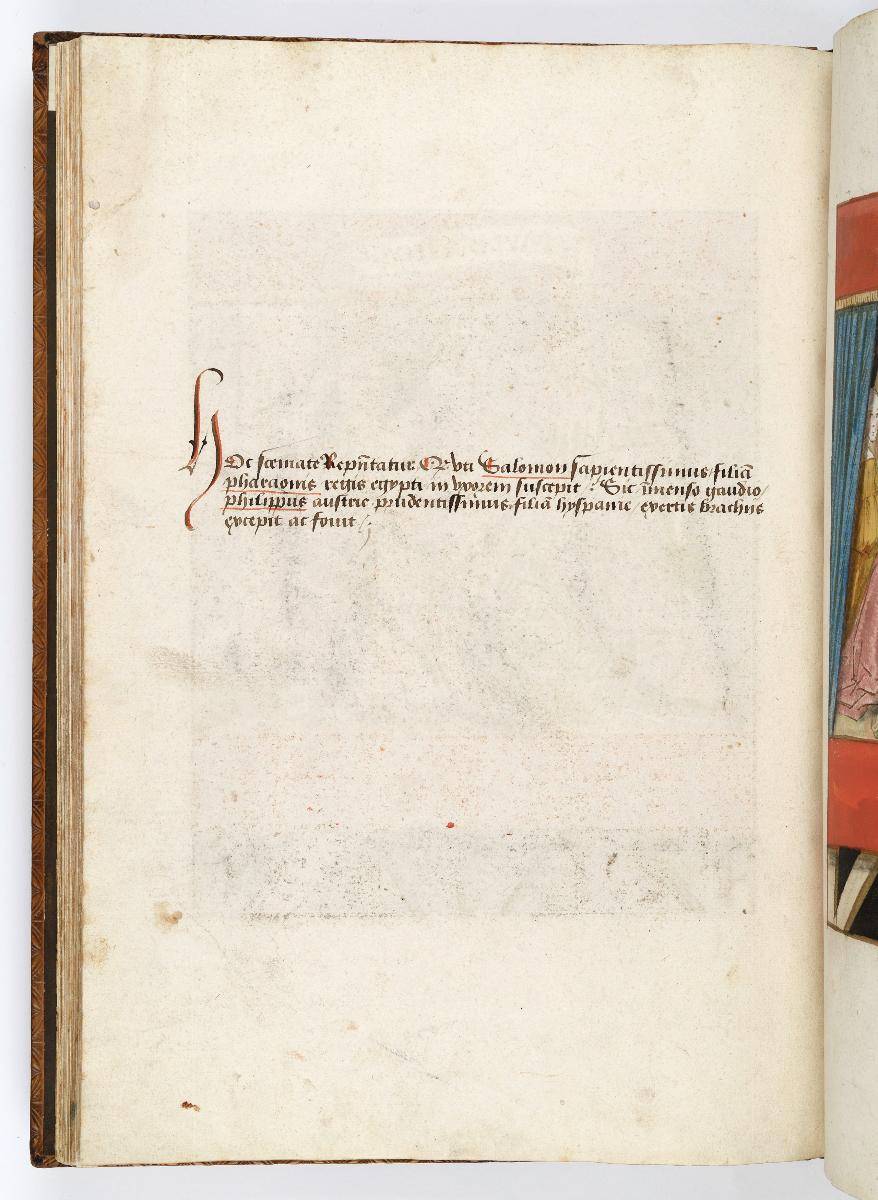 HOc scemate Rep̄ntatur Qr vti Salomon sapientissimus / filiā
pharaonis regis egypti in vxorem suscepit : Sic īmenso gaudio /
philippus austrie prudentissimus / filiā hyspanie / exertis brachiis
excepit ac fouit / ;